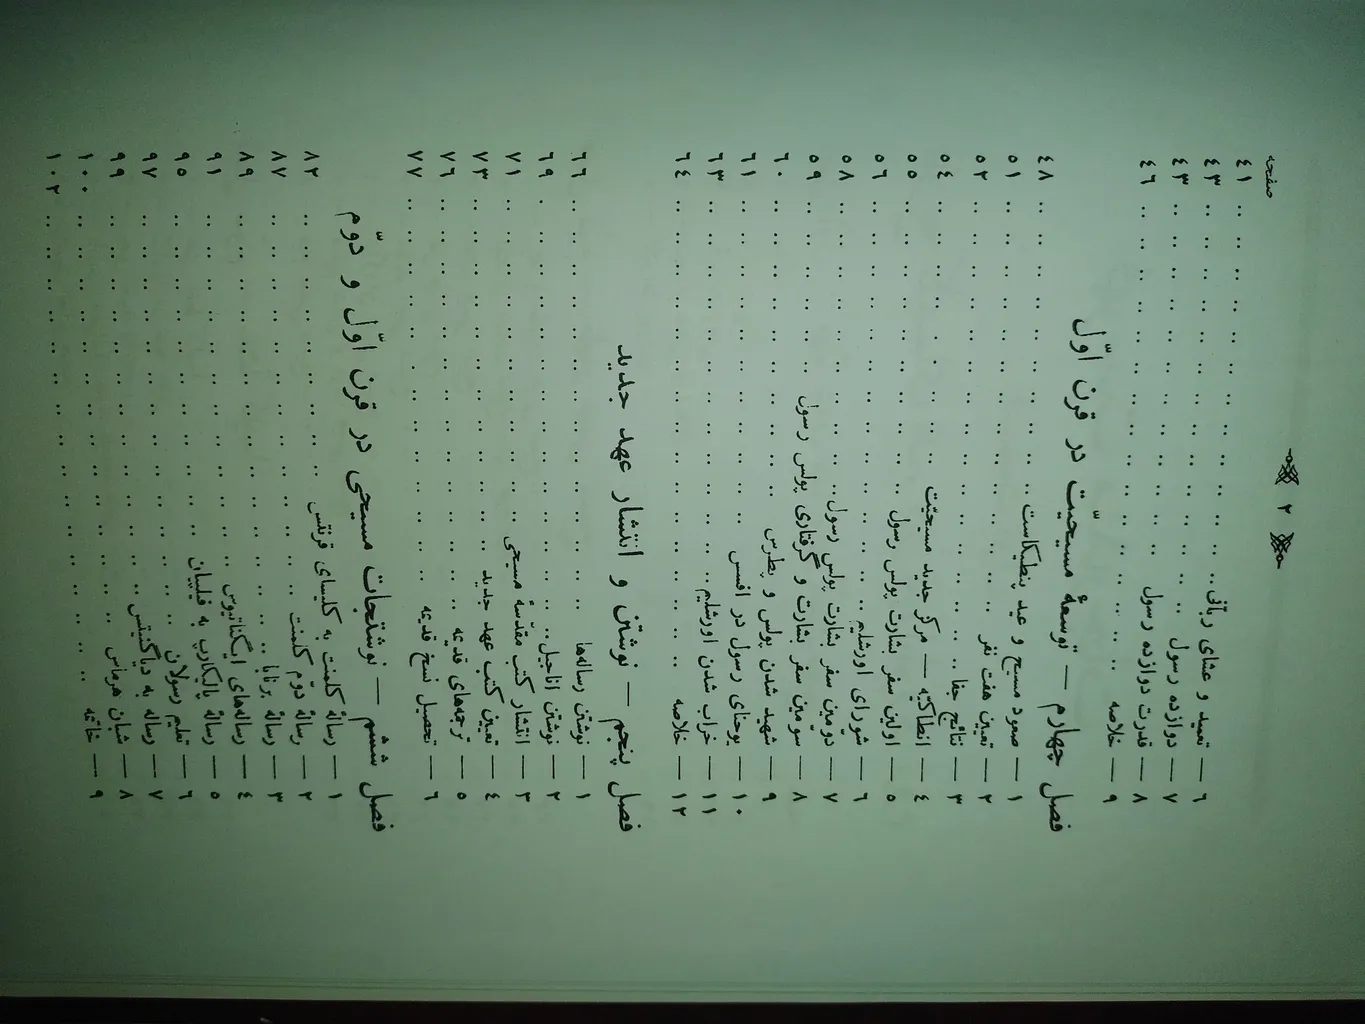 ۲
صفحه
۶ — تعمید و عشای ربّانی .. .. .. .. .. .. .. ۴۱
۷ — دوازده رسول .. .. .. .. .. .. .. .. ۴۳
۸ — قدرت دوازده رسول .. .. .. .. .. .. .. ۴۳
۹ — خلاصه .. .. .. .. .. .. .. .. .. ۴۶
فصل چهارم — توسعهٔ مسیحیّت در قرن اوّل
۱ — صعود مسیح و عید پنطیکاست .. .. .. .. .. .. ۴۸
۲ — تعیین هفت نفر .. .. .. .. .. .. .. .. ۵۱
۳ — نتائج جفا .. .. .. .. .. .. .. .. .. ۵۲
۴ — انطاکیه — مرکز جدید مسیحیّت .. .. .. .. .. ۵۴
۵ — اولین سفر بشارت پولس رسول .. .. .. .. .. .. ۵۵
۶ — شورای اورشلیم .. .. .. .. .. .. .. .. ۵۶
۷ — دومین سفر بشارت پولس رسول .. .. .. .. .. .. ۵۸
۸ — سومین سفر بشارت و گرفتاری پولس رسول .. .. .. .. ۵۹
۹ — شهید شدن پولس و پطرس .. .. .. .. .. .. ۶۰
۱۰ — یوحنای رسول در افسس .. .. .. .. .. .. .. ۶۱
۱۱ — خراب شدن اورشلیم .. .. .. .. .. .. .. ۶۳
۱۲ — خلاصه .. .. .. .. .. .. .. .. .. ۶۴
فصل پنجم — نوشتن و انتشار عهد جدید
۱ — نوشتن رساله‌ها .. .. .. .. .. .. .. .. ۶۶
۲ — نوشتن اناجیل .. .. .. .. .. .. .. .. ۶۹
۳ — انتشار کتب مقدّسهٔ مسیحی .. .. .. .. .. .. ۷۱
۴ — تعیین کتب عهد جدید .. .. .. .. .. .. .. ۷۳
۵ — ترجمه‌های قدیمه .. .. .. .. .. .. .. .. ۷۶
۶ — تحصیل نسخ قدیمه .. .. .. .. .. .. .. .. ۷۷
فصل ششم — نوشتجات مسیحی در قرن اوّل و دوّم
۱ — رسالهٔ کلمنت به کلیسای قرنتس .. .. .. .. .. .. ۸۲
۲ — رسالهٔ دوّم کلمنت .. .. .. .. .. .. .. .. ۸۷
۳ — رسالهٔ برنابا .. .. .. .. .. .. .. .. .. ۸۹
۴ — رساله‌های ایگناتیوس .. .. .. .. .. .. .. ۹۱
۵ — رسالهٔ پالیکارپ به فلیپیان .. .. .. .. .. .. ۹۵
۶ — تعلیم رسولان .. .. .. .. .. .. .. .. .. ۹۷
۷ — رساله به دیاگنیتس .. .. .. .. .. .. .. .. ۹۹
۸ — شبان هرماس .. .. .. .. .. .. .. .. .. ۱۰۰
۹ — خاتمه .. .. .. .. .. .. .. .. .. .. ۱۰۲